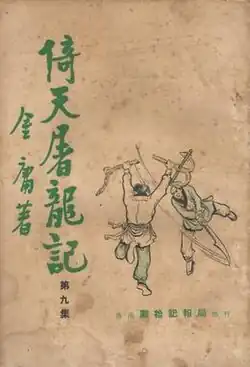 倚天屠龍記
第九集
金庸著
鄺拾記報局